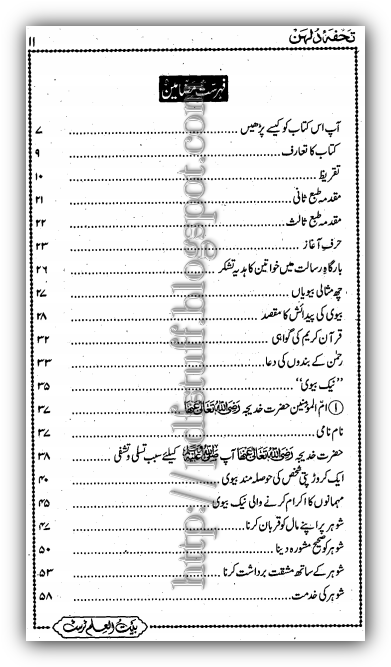 تحفۂ دُلہن ۱۱
فہرست مضامین
آپ اس کتاب کو کیسے پڑھیں ........ ۷
کتاب کا تعارف ........ ۹
تقریظ ........ ۱۰
مقدمہ طبع ثانی ........ ۲۱
مقدمہ طبع ثالث ........ ۲۲
حرفِ آغاز ........ ۲۳
بارگاہِ رسالت میں خواتین کا ہدیہ تشکر ........ ۲۶
چھ مثالی بیویاں ........ ۲۷
بیوی کی پیدائش کا مقصد ........ ۲۸
قرآن کریم کی گواہی ........ ۳۲
رحمٰن کے بندوں کی دعا ........ ۳۳
’’نیک بیوی‘‘ ........ ۳۵
① امّ المؤمنین حضرت خدیجہ رَضِيَ اللهُ تَعَالٰى عَنْهَا ........ ۳۷
نام نامی ........ ۳۷
حضرت خدیجہ رَضِيَ اللهُ تَعَالٰى عَنْهَا آپ ﷺ کیلئے سبب تسلی و تشفی ۳۸
ایک کروڑ پتی شخص کی حوصلہ مند بیوی ........ ۴۰
مہمانوں کا اکرام کرنے والی نیک بیوی ........ ۴۵
شوہر پر اپنے مال کو قربان کرنا ........ ۴۷
شوہر کو صحیح مشورہ دینا ........ ۵۰
شوہر کے ساتھ مشقت برداشت کرنا ........ ۵۳
شوہر کی خدمت ........ ۵۸
بیت العلم ٹرسٹ
http://pdfstuff.blogspot.com